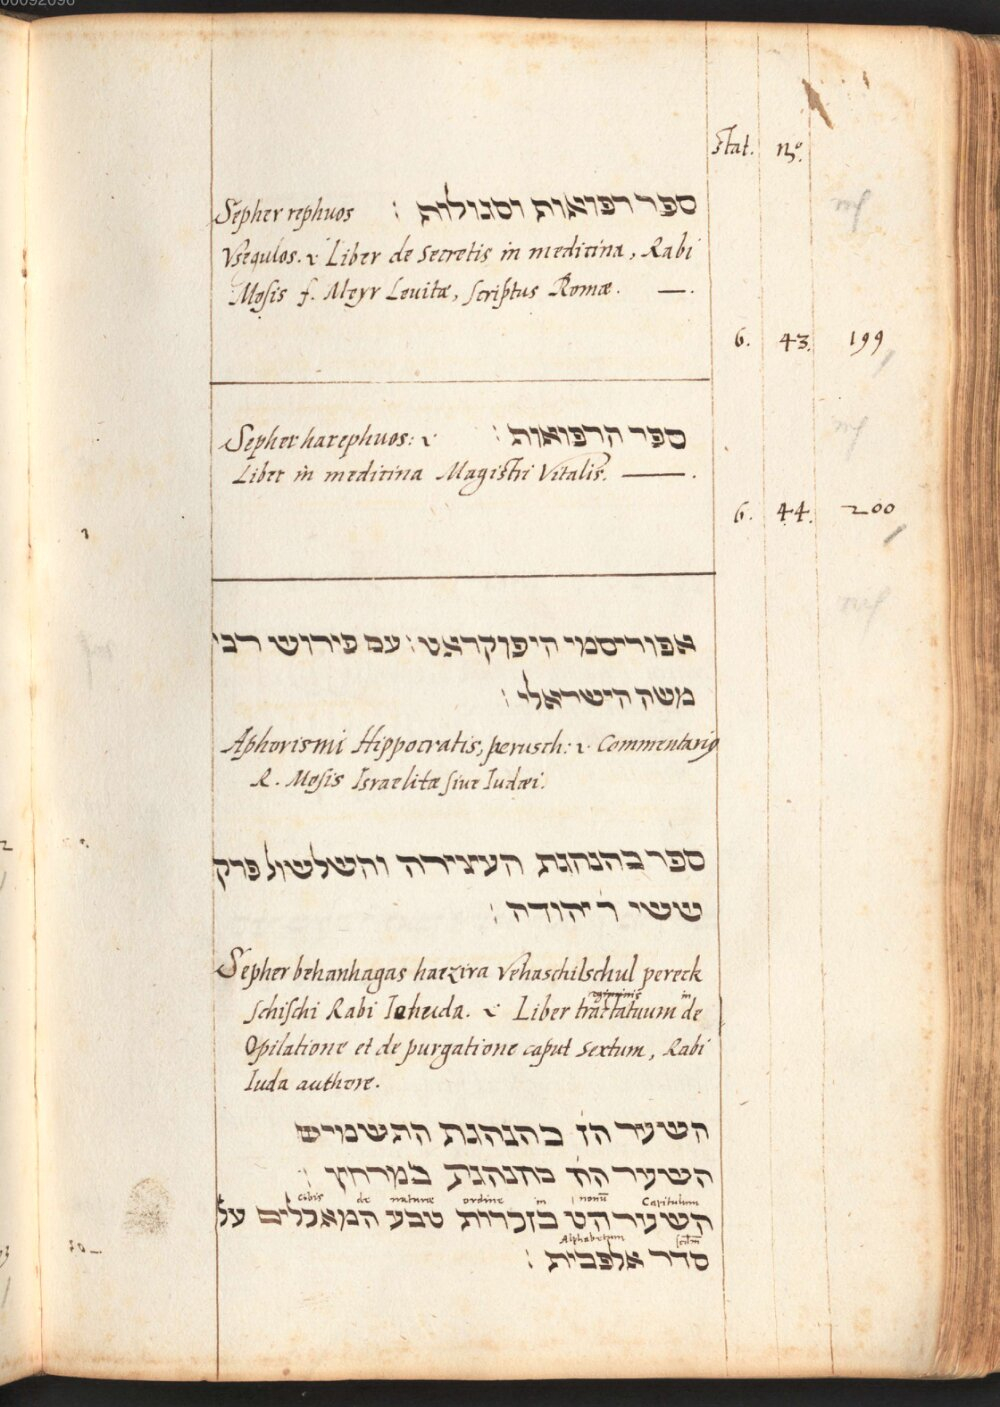 stat. no.
Sepher rephuos ספר רפואות וסגולות :
Vsegulos. Liber de secretis in medicina, Rabi
Mosis f. Meyr Leuitæ, scriptus Romæ. —.
6. 43. 199
Sepher harephuos: ספר הרפואות :
Liber in medicina Magistri Vitalis. —.
6. 44. 200
אפוריסמי היפוקראט : עם פירוש רבי
משה הישראלי :
Aphorismi Hippocratis, perusch: Commentario
R. Mosis Israelitæ siue Iudæi.
ספר בהנהגת העצירה והשלשול פרק
ששי ר יהודה :
Sepher behanhagas haezira Vehaschilschul pereck
schischi Rabi Ieheuda. Liber tractatuum de
Opilatione et de purgatione caput sextum, Rabi
Iuda authore.
השער הז בהנהגת התשמיש
השער הח בהנהגת במרחץ :
Capitulum nonū in ordine naturæ de cibis
השער הט בזכרות טבע המאכלים על
Alphabetum
סדר אלפבית :